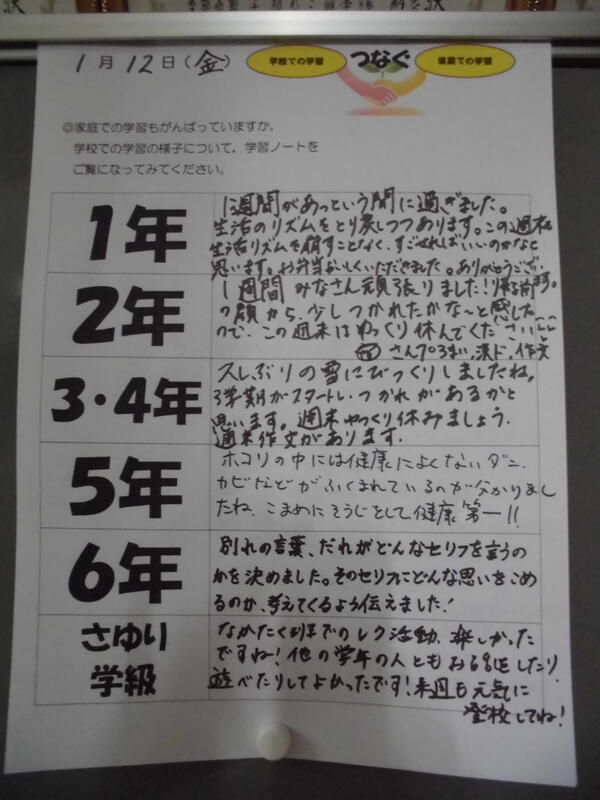 1月12日(金)
学校での学習
つなぐ
家庭での学習
◎家庭での学習もがんばっていますか。
学校での学習の様子について、学習ノートを
ご覧になってみてください。
1年
1週間があっという間に過ぎました。
生活のリズムをとり戻しつつあります。この週末も
生活リズムを崩すことなく、すごせればいいのかなと
思います。お弁当おいしくいただきました。ありがとうござい
ます。
2年
1週間みなさん頑張りました!帰る前
の顔から、少しつかれたかな〜と感じた
ので、この週末はゆっくり休んでください
さんプロまい,漢ド,作文
3・4年
久しぶりの雪にびっくりしましたね。
3学期がスタートし、つかれがあるかと
思います。週末ゆっくり休みましょう。
週末作文があります。
5年
ホコリの中には健康によくないダニ、
カビなどがふくまれているのが分かりまし
たね。こまめにそうじをして健康第一!!
6年
別れの言葉、だれがどんなセリフを言うの
かを決めました。そのセリフにどんな思いをこめ
るのか、考えてくるよう伝えました!
さゆり
学級
なかたく班でのレク活動、楽しかった
ですね!他の学年の人ともお話したり、
遊べたりしてよかったです!来週も元気に
登校してね!